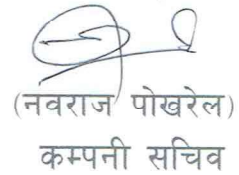 (नवराज पोखरेल)
कम्पनी सचिव